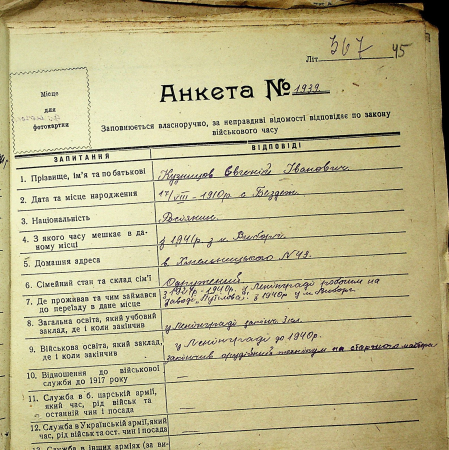 Літ 567 45
Місце
для
фотокартки
Анкета № 1939
Заповнюється власноручно, за неправдиві відомості відповідає по закону
військового часу
ЗАПИТАННЯ
ВІДПОВІДІ
1. Прізвище, ім'я та по батькові
Кузнецов Євгеній Іванович
2. Дата та місце народження
17/VIII - 1910р. с.
3. Національність
Росіянин
4. З якого часу мешкає в да-
ному місці
з 1941р. з м. Виборг
5. Домашня адреса
в. Хмельницького № 49.
6. Сімейний стан та склад сім'ї
Одружений
7. Де проживав та чим займався
до переїзду в дане місце
з 1927р. - 1940р. у Ленінграді робочим на
заводі „Путілова". з 1940р у м. Виборг.
8. Загальна освіта, який учбовий
заклад, де і коли закінчив
у Ленінграді
9. Військова освіта, який заклад,
де і коли закінчив
у Ленінграді до 1940р.
закінчив технікум на старшого майстра
10. Відношення до військової
служби до 1917 року
—
11. Служба в б. царській армії,
який час, рід військ та
останній чин і посада
—
12. Служба в Українській армії, який
час, рід військ та ост. чин і посада
13. Служба в інших арміях (за ви-